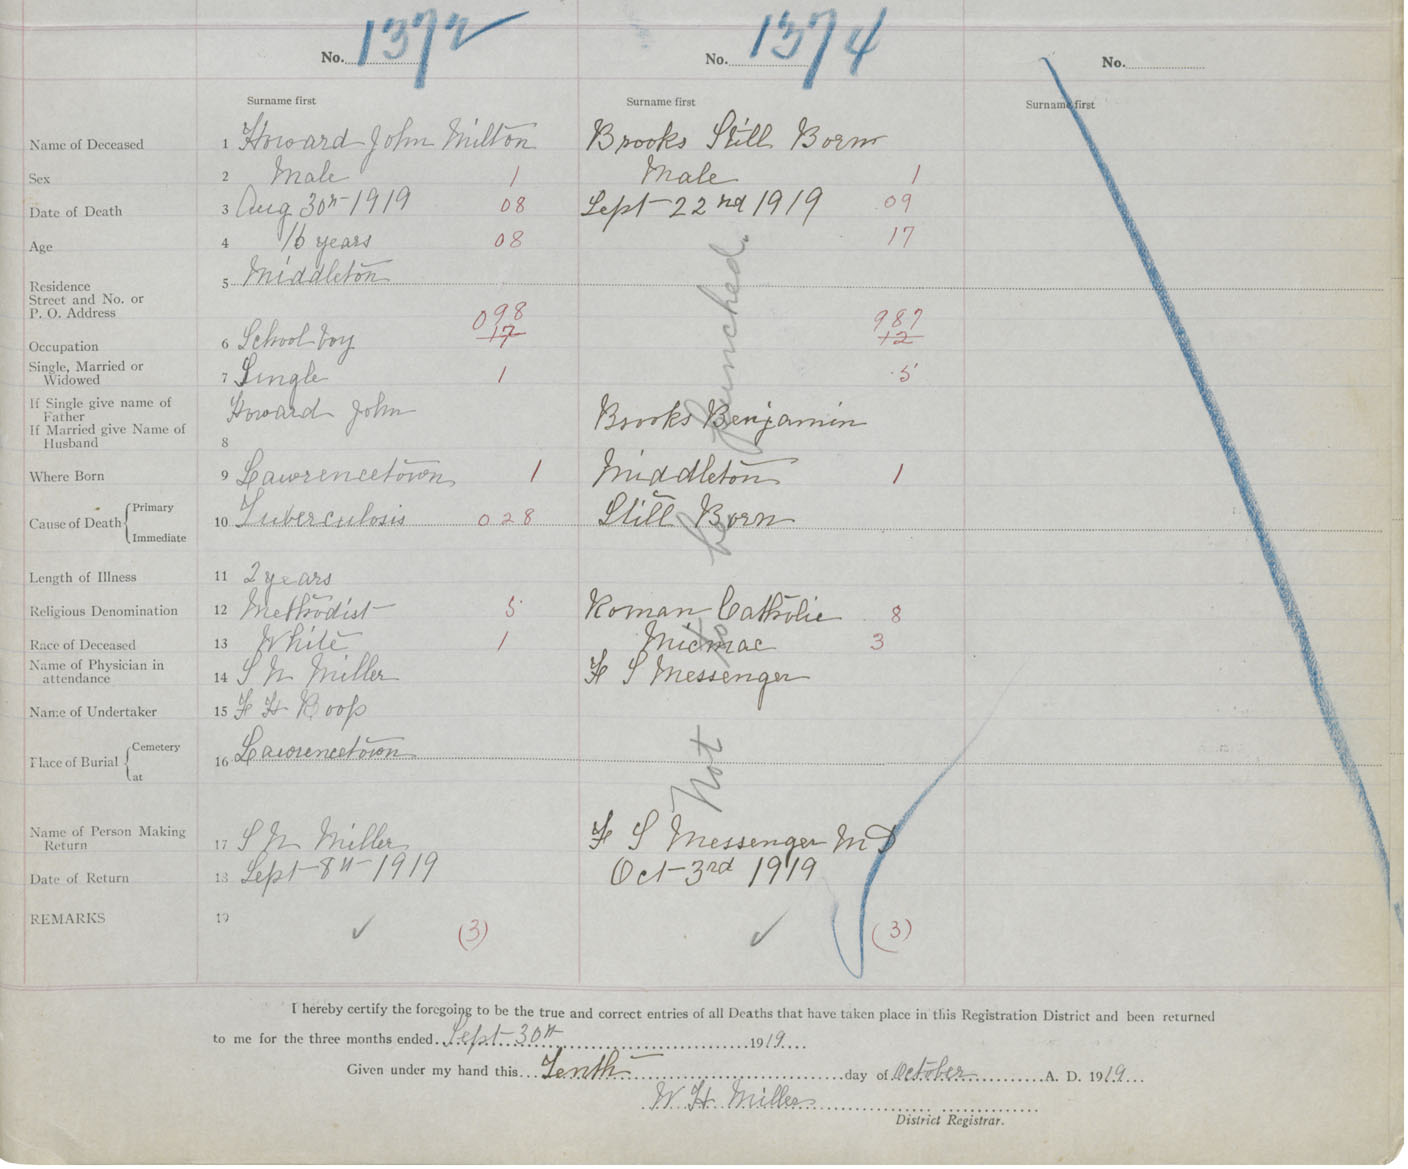 No. 1372 No. 1374 No.
Surname first Surname first Surname first
Name of Deceased 1 Howard John Milton Brooks Still Born
Sex 2 Male 1 Male 1
Date of Death 3 Aug 30th 1919 08 Sept 22nd 1919 09
Age 4 16 years 08 17
Residence 5 Middleton
Street and No. or
P. O. Address 098 987
Occupation 6 School boy 17 12
Single, Married or
Widowed 7 Single 1 5
If Single give name of Howard John Brooks Benjamin
Father
If Married give Name of
Husband 8
Where Born 9 Lawrencetown 1 Middleton 1
Primary
Cause of Death 10 Tuberculosis 028 Still Born
Immediate
Length of Illness 11 2 years
Religious Denomination 12 Methodist 5 Roman Catholic 8
Race of Deceased 13 White 1 Micmac 3
Name of Physician in
attendance 14 S N Miller F S Messenger
Name of Undertaker 15 F H
Cemetery
Place of Burial 16 Lawrencetown
at
Name of Person Making
Return 17 S N Miller F S Messenger MD
Date of Return 18 Sept 8th 1919 Oct 3rd 1919
REMARKS 19 ✓ (3) ✓ (3)
Not to be punched.
I hereby certify the foregoing to be the true and correct entries of all Deaths that have taken place in this Registration District and been returned
to me for the three months ended Sept 30th 1919
Given under my hand this Tenth day of October A. D. 1919
W H Miller
District Registrar.